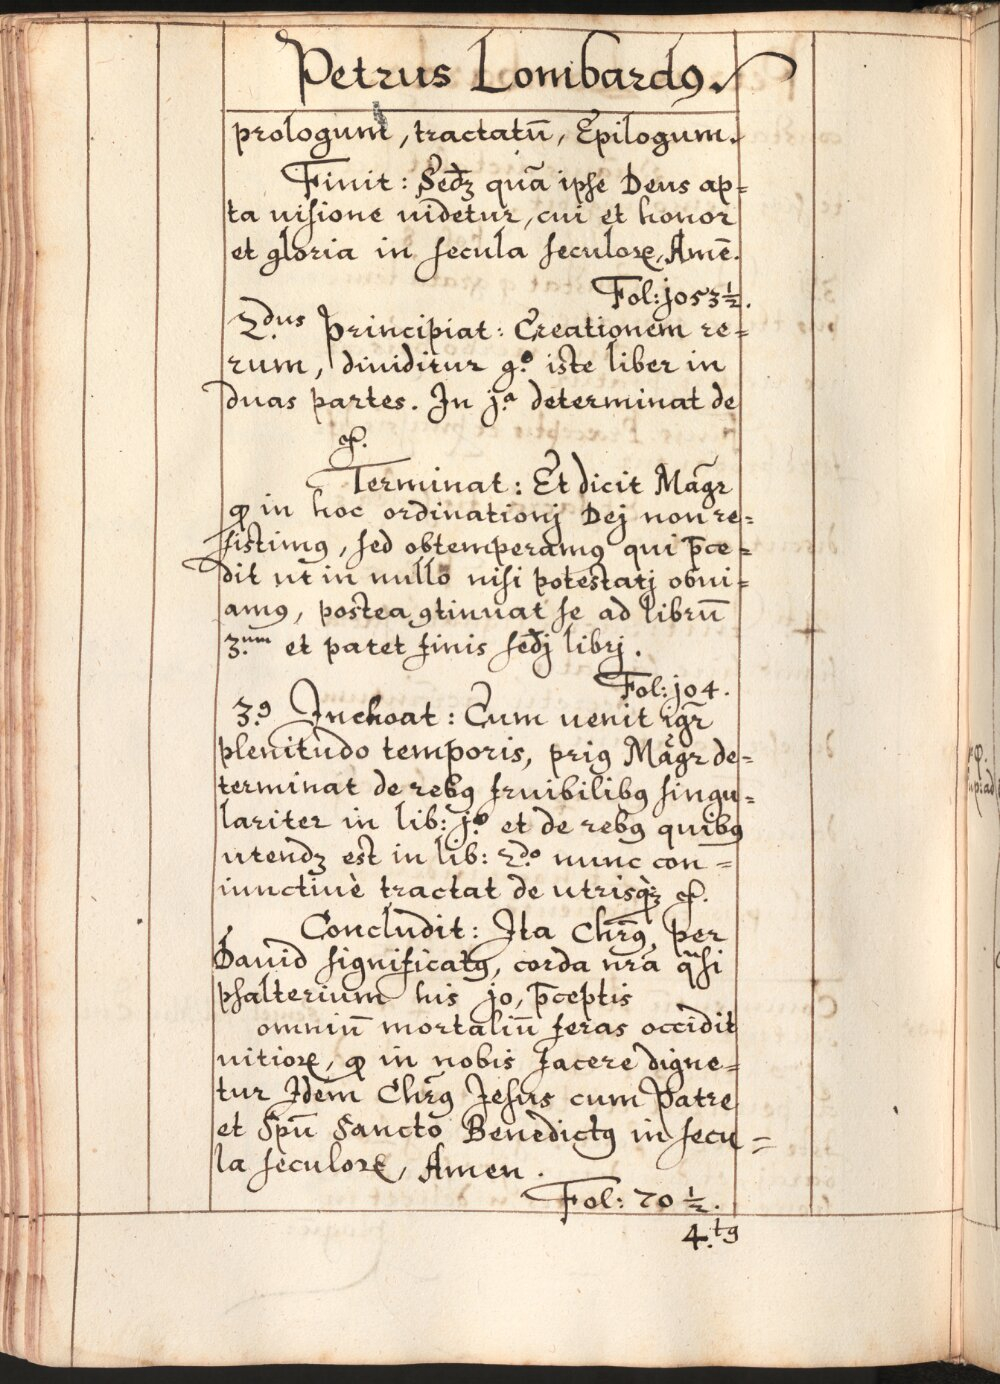 Petrus Lombardꝯ.
prologum, tractatū, Epilogum.
Finit: Sedꝫ quā ipse Deus ap=
ta uisione uidetur, cui et honor
et gloria in secula seculoꝝ, Amē.
Fol: j053½.
2.dus Principiat: Creationem re=
rum, diuiditur g.º iste liber in
duas partes. In j.ª determinat de
⁊c.
Terminat: Et dicit Magr̄
ꝙ in hoc ordinationj Dej non re=
sistimꝯ, sed obtemperamꝯ qui p̄ce=
dit ut in nullo nisi potestatj obui=
amꝯ, postea ꝯtinuat se ad librū
3.um et patet finis sedj librj.
Fol: j04.
3.ꝯ Inchoat: Cum uenit igr̄
plenitudo temporis, priꝯ Magr̄ de=
terminat de rebꝯ fruibilibꝯ singu=
lariter in lib: j.º et de rebꝯ quibꝯ
utendꝫ est in lib: 2.do nunc con=
iunctiuè tractat de utrisqꝫ ⁊c.
Concludit: Ita Chrꝯ̄, per
Dauid significatꝯ, corda nr̄a qūsi
psalterium his jo, p̄ceptis
omniū mortaliū feras occidit
uitioꝝ, ꝙ in nobis facere digne=
tur Idem Chrꝯ̄ Jesus cum Patre
et Spū Sancto Benedictꝯ in secu=
la seculoꝝ, Amen.
Fol: 70½.
4.tꝯ